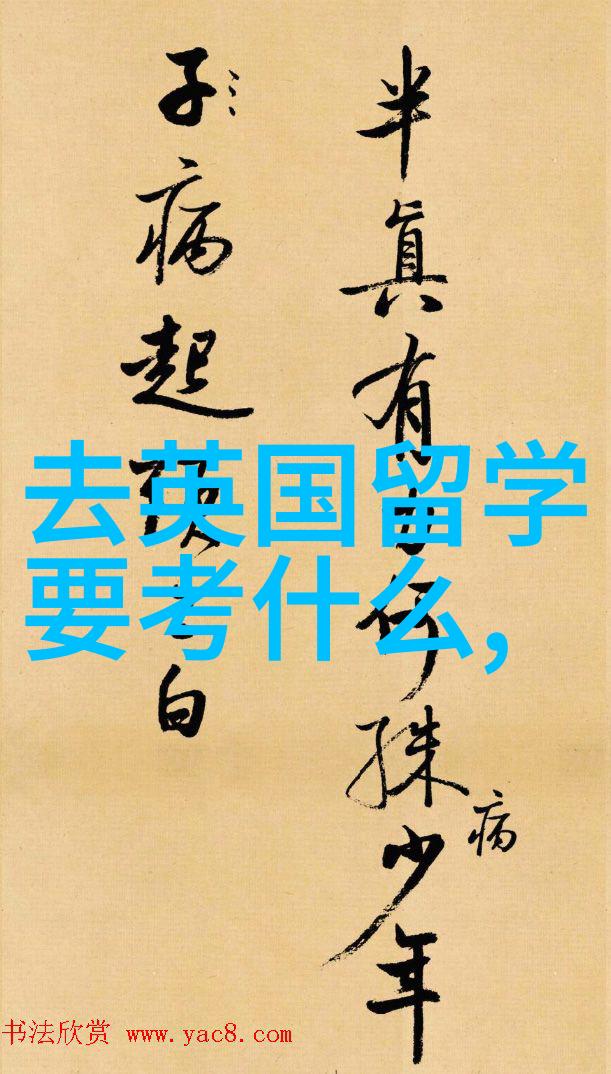 半眞有何殊少年
病
子病起白
去英国留学
要考什么,
书法欣赏 www.yac8.com